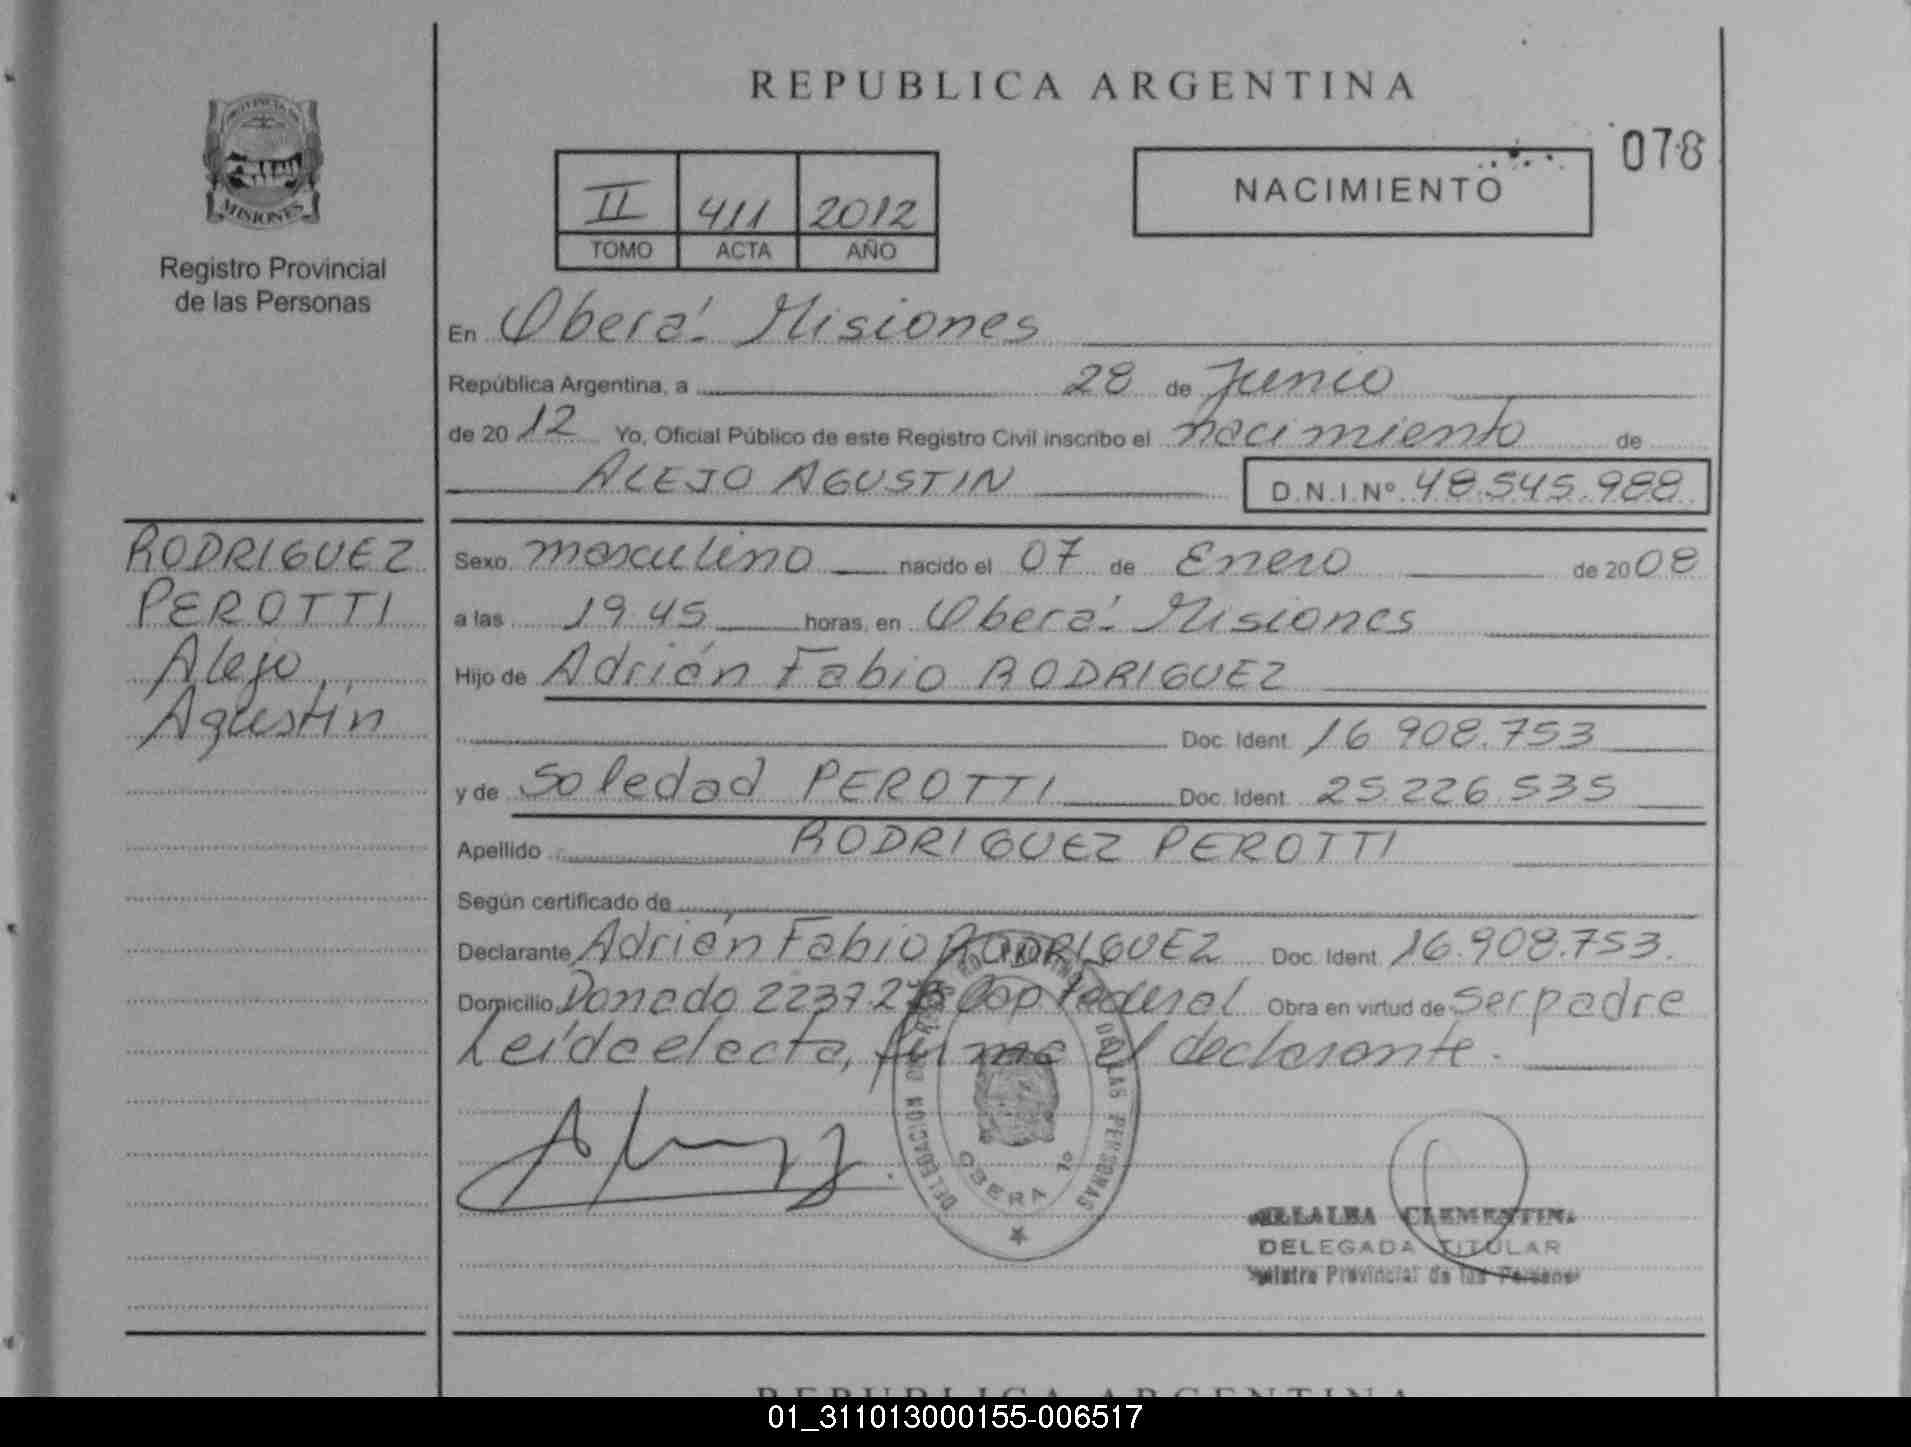 REPUBLICA ARGENTINA
078
II 411 2012
TOMO ACTA AÑO
NACIMIENTO
PROVINCIA DE
MISIONES
Registro Provincial
de las Personas
En Oberá. Misiones
República Argentina, a 28 de Junio
de 2012 Yo, Oficial Público de este Registro Civil inscribo el nacimiento de
ALEJO AGUSTIN D.N.I.Nº 48.545.988
RODRIGUEZ
PEROTTI
Alejo
Agustín
Sexo masculino nacido el 07 de Enero de 2008
a las 19.45 horas, en Oberá. Misiones
Hijo de Adrián Fabio RODRIGUEZ
Doc. Ident. 16.908.753
y de Soledad PEROTTI Doc. Ident. 25.226.535
Apellido RODRIGUEZ PEROTTI
Según certificado de
Declarante Adrián Fabio RODRIGUEZ Doc. Ident. 16.908.753.
Domicilio Donado 2237 Cap Federal Obra en virtud de ser padre
Leída el acta, firma el declarante.
DELEGACION DE LAS PERSONAS
OBERA
CLEMENTINA
DELEGADA TITULAR
Provincial de las Personas
REPUBLICA ARGENTINA
01_311013000155-006517